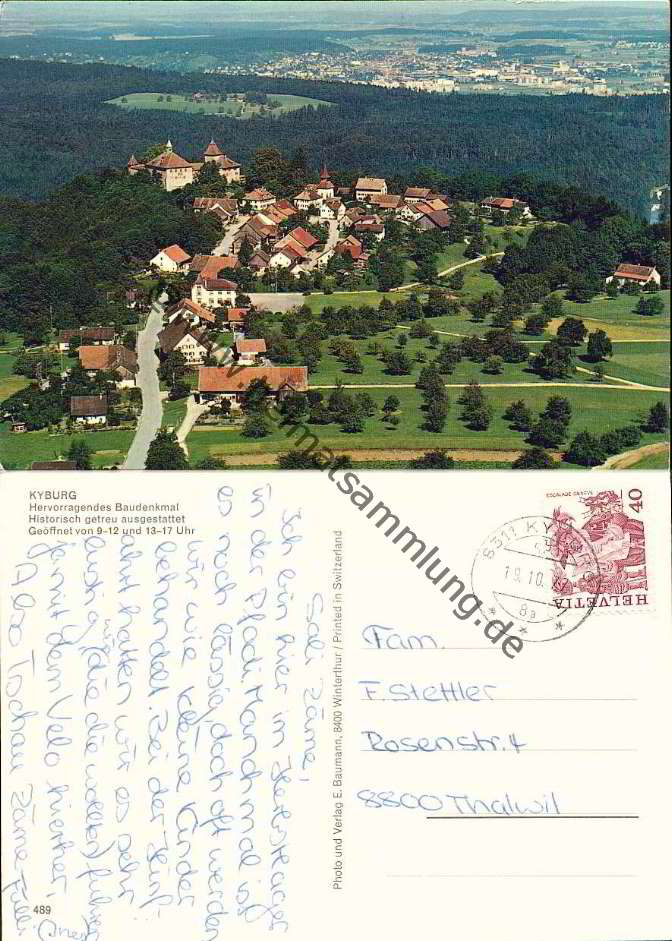 KYBURG
Hervorragendes Baudenkmal
Historisch getreu ausgestattet
Geöffnet von 9–12 und 13–17 Uhr
Sali Zäme,
Ich bin hier im Herbstlager
in der Pfadi. Manchmal ist
es noch lässig, doch oft werden
wir wie kleine Kinder
behandelt. Bei der Hin-
fahrt hatten wir es sehr
lustig, (die die wollten) fuhren
wir
ja mit dem Velo hierher.
Also Tschau Zäme
489
Photo und Verlag E. Baumann, 8400 Winterthur / Printed in Switzerland
ESCALADE GENÈVE
40
HELVETIA
8311 KY
19.10.
8a
Fam.
F. Stettler
Rosenstr. 4
8800 Thalwil
www.heimatsammlung.de